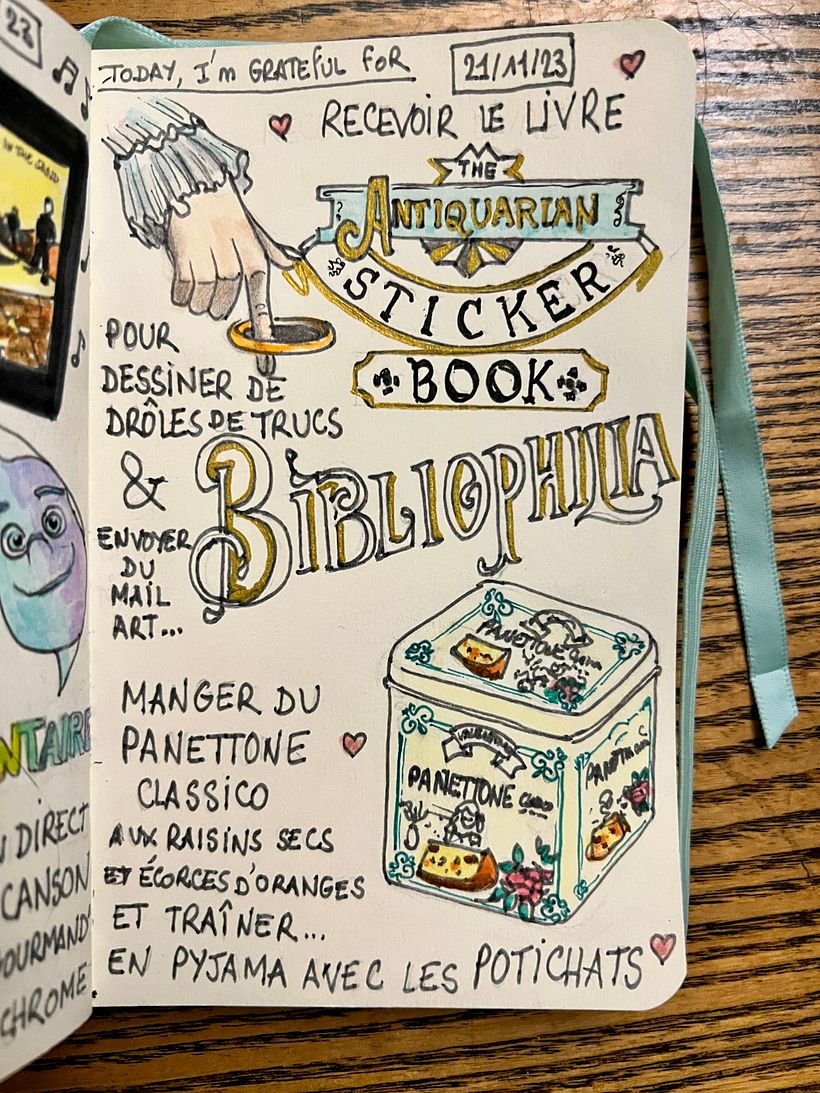 23
IN THE SAND
NTAIRE
DIRECT
CANSON
OURMAND
CHROME
TODAY, I'm GRATEFUL FOR 21/11/23
RECEVOIR LE LIVRE
THE
ANTIQUARIAN
STICKER
BOOK
POUR
DESSINER DE
DRÔLES DE TRUCS
& BIBLIOPHILIA
ENVOYER
DU
MAIL
ART...
PANETTONE
MANGER DU
PANETTONE
CLASSICO
AUX RAISINS SECS
ET ÉCORCES D'ORANGES
ET TRAÎNER...
EN PYJAMA AVEC LES POTICHATS
PANETTONE